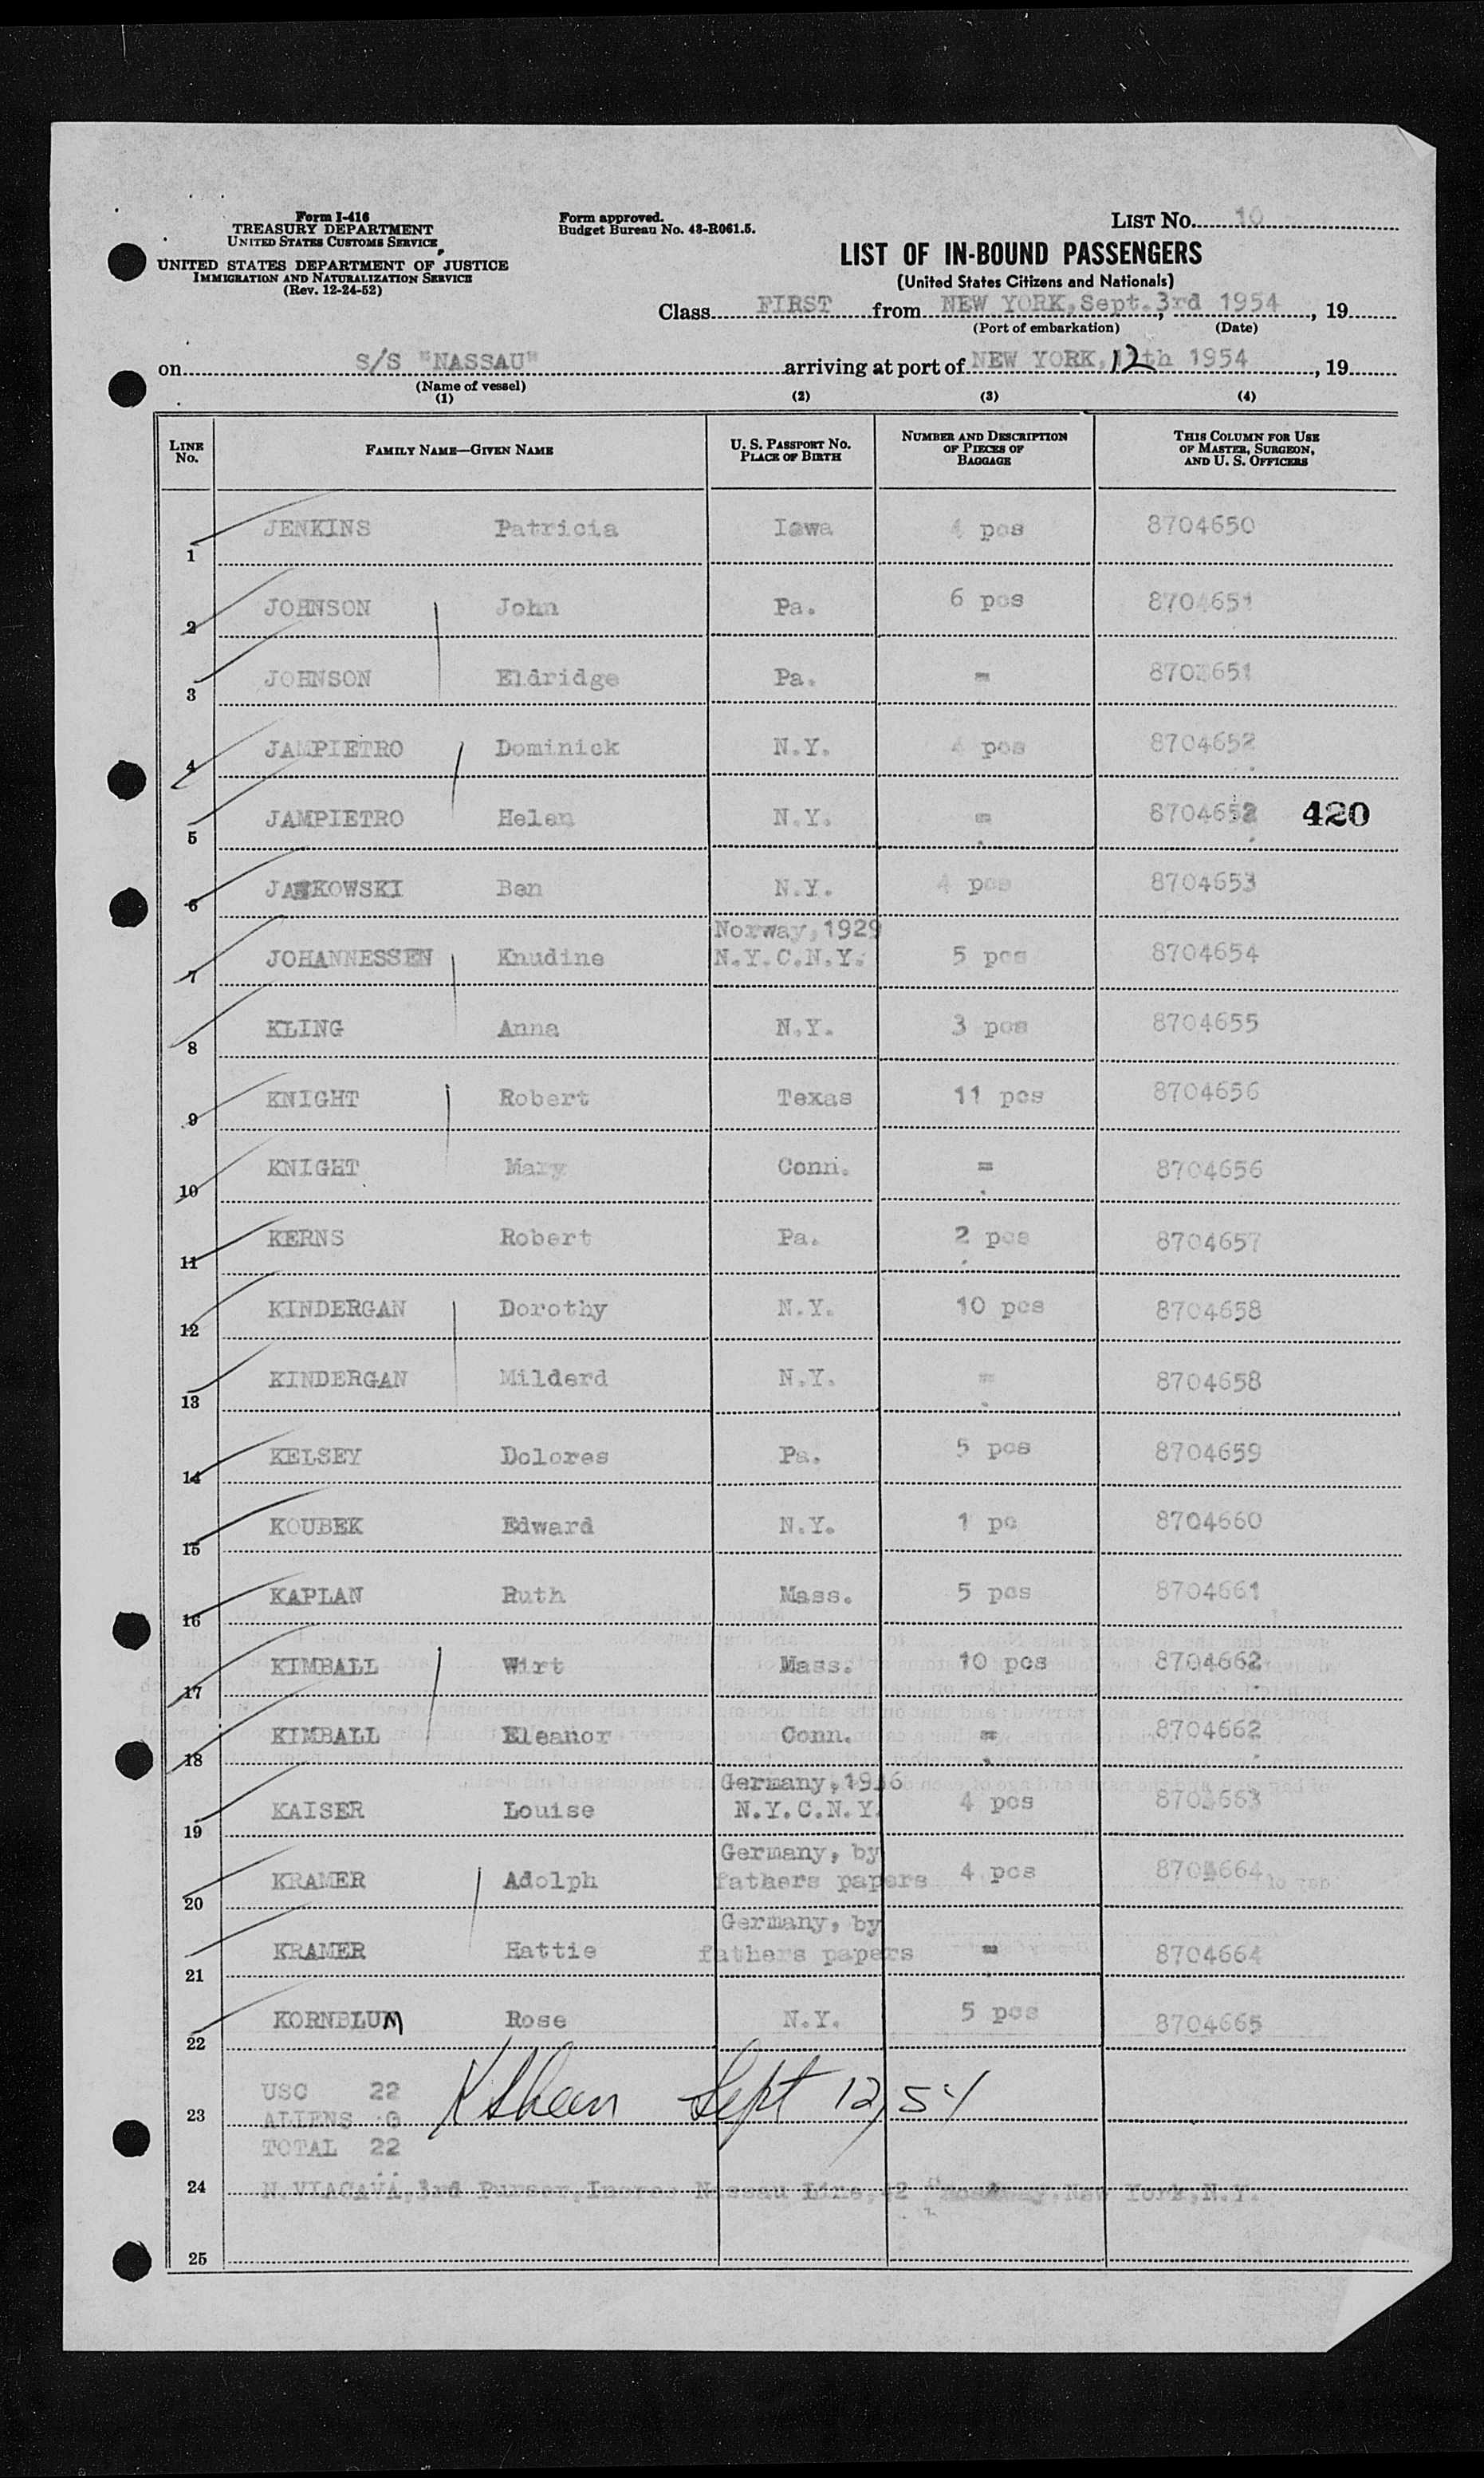 Form I-416
TREASURY DEPARTMENT
UNITED STATES CUSTOMS SERVICE
UNITED STATES DEPARTMENT OF JUSTICE
IMMIGRATION AND NATURALIZATION SERVICE
(Rev. 12-24-52)
Form approved.
Budget Bureau No. 43-R061.5.
LIST No. 10
LIST OF IN-BOUND PASSENGERS
(United States Citizens and Nationals)
Class FIRST from NEW YORK, Sept. 3rd 1954, 19
(Port of embarkation) (Date)
on S/S "NASSAU" arriving at port of NEW YORK, 12th 1954, 19
(Name of vessel)
(1) (2) (3) (4)
LINE No. FAMILY NAME—GIVEN NAME U. S. PASSPORT No. PLACE OF BIRTH NUMBER AND DESCRIPTION OF PIECES OF BAGGAGE THIS COLUMN FOR USE OF MASTER, SURGEON, AND U. S. OFFICERS
1 JENKINS Patricia Iowa 4 pcs 8704650
2 JOHNSON John Pa. 6 pcs 8704651
3 JOHNSON Eldridge Pa. = 8704651
4 JAMPIETRO Dominick N.Y. 4 pcs 8704652
5 JAMPIETRO Helen N.Y. = 8704652 420
6 JANKOWSKI Ben N.Y. 4 pcs 8704653
Norway, 1929
7 JOHANNESSEN Knudine N.Y.C.N.Y. 5 pcs 8704654
8 KLING Anna N.Y. 3 pcs 8704655
9 KNIGHT Robert Texas 11 pcs 8704656
10 KNIGHT Mary Conn. = 8704656
11 KERNS Robert Pa. 2 pcs 8704657
12 KINDERGAN Dorothy N.Y. 10 pcs 8704658
13 KINDERGAN Milderd N.Y. = 8704658
14 KELSEY Dolores Pa. 5 pcs 8704659
15 KOUBEK Edward N.Y. 1 pc 8704660
16 KAPLAN Ruth Mass. 5 pcs 8704661
17 KIMBALL Wirt Mass. 10 pcs 8704662
18 KIMBALL Eleanor Conn. = 8704662
Germany, 1936
19 KAISER Louise N.Y.C.N.Y. 4 pcs 8704663
Germany, by
20 KRAMER Adolph fathers papers 4 pcs 8704664
Germany, by
21 KRAMER Hattie fathers papers = 8704664
22 KORNBLUM Rose N.Y. 5 pcs 8704665
USC 22
23 ALIENS 0 Sept 12, 54
TOTAL 22
24 N.VIACAVA, 3rd Purser, Incres Nassau Line, 42 Broadway, New York, N.Y.
25